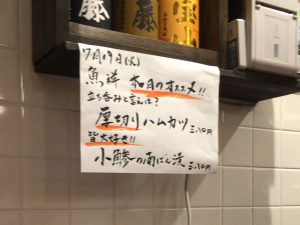 藤
宝山
7月19日(火)
魚祥 本日のオススメ!!
立ち呑みと言えば?
厚切りハムカツ 三八〇円
皆大好き!!
小鯵の南ばん漬 三八〇円